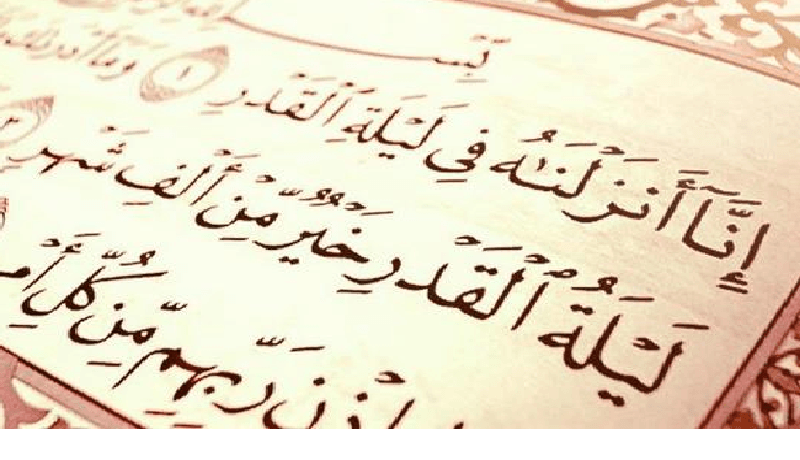 بِسْ
إِنَّآ أَنزَلْنَٰهُ فِي لَيْلَةِ ٱلْقَدْرِ ١ وَمَآ أَدْرَىٰكَ
لَيْلَةُ ٱلْقَدْرِ خَيْرٌ مِّنْ أَلْفِ شَهْرٍ ٣
بِإِذْنِ رَبِّهِم مِّن كُلِّ أَمْ